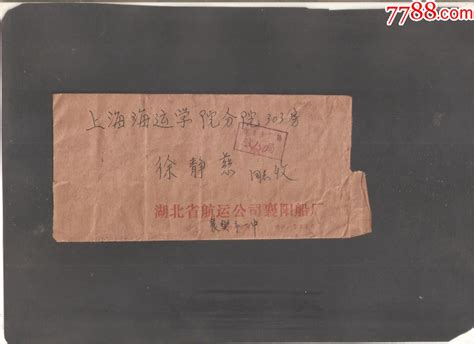 7788.com
上海海运学院分院303房
徐静慈 同志收
湖北省航运公司襄阳船厂